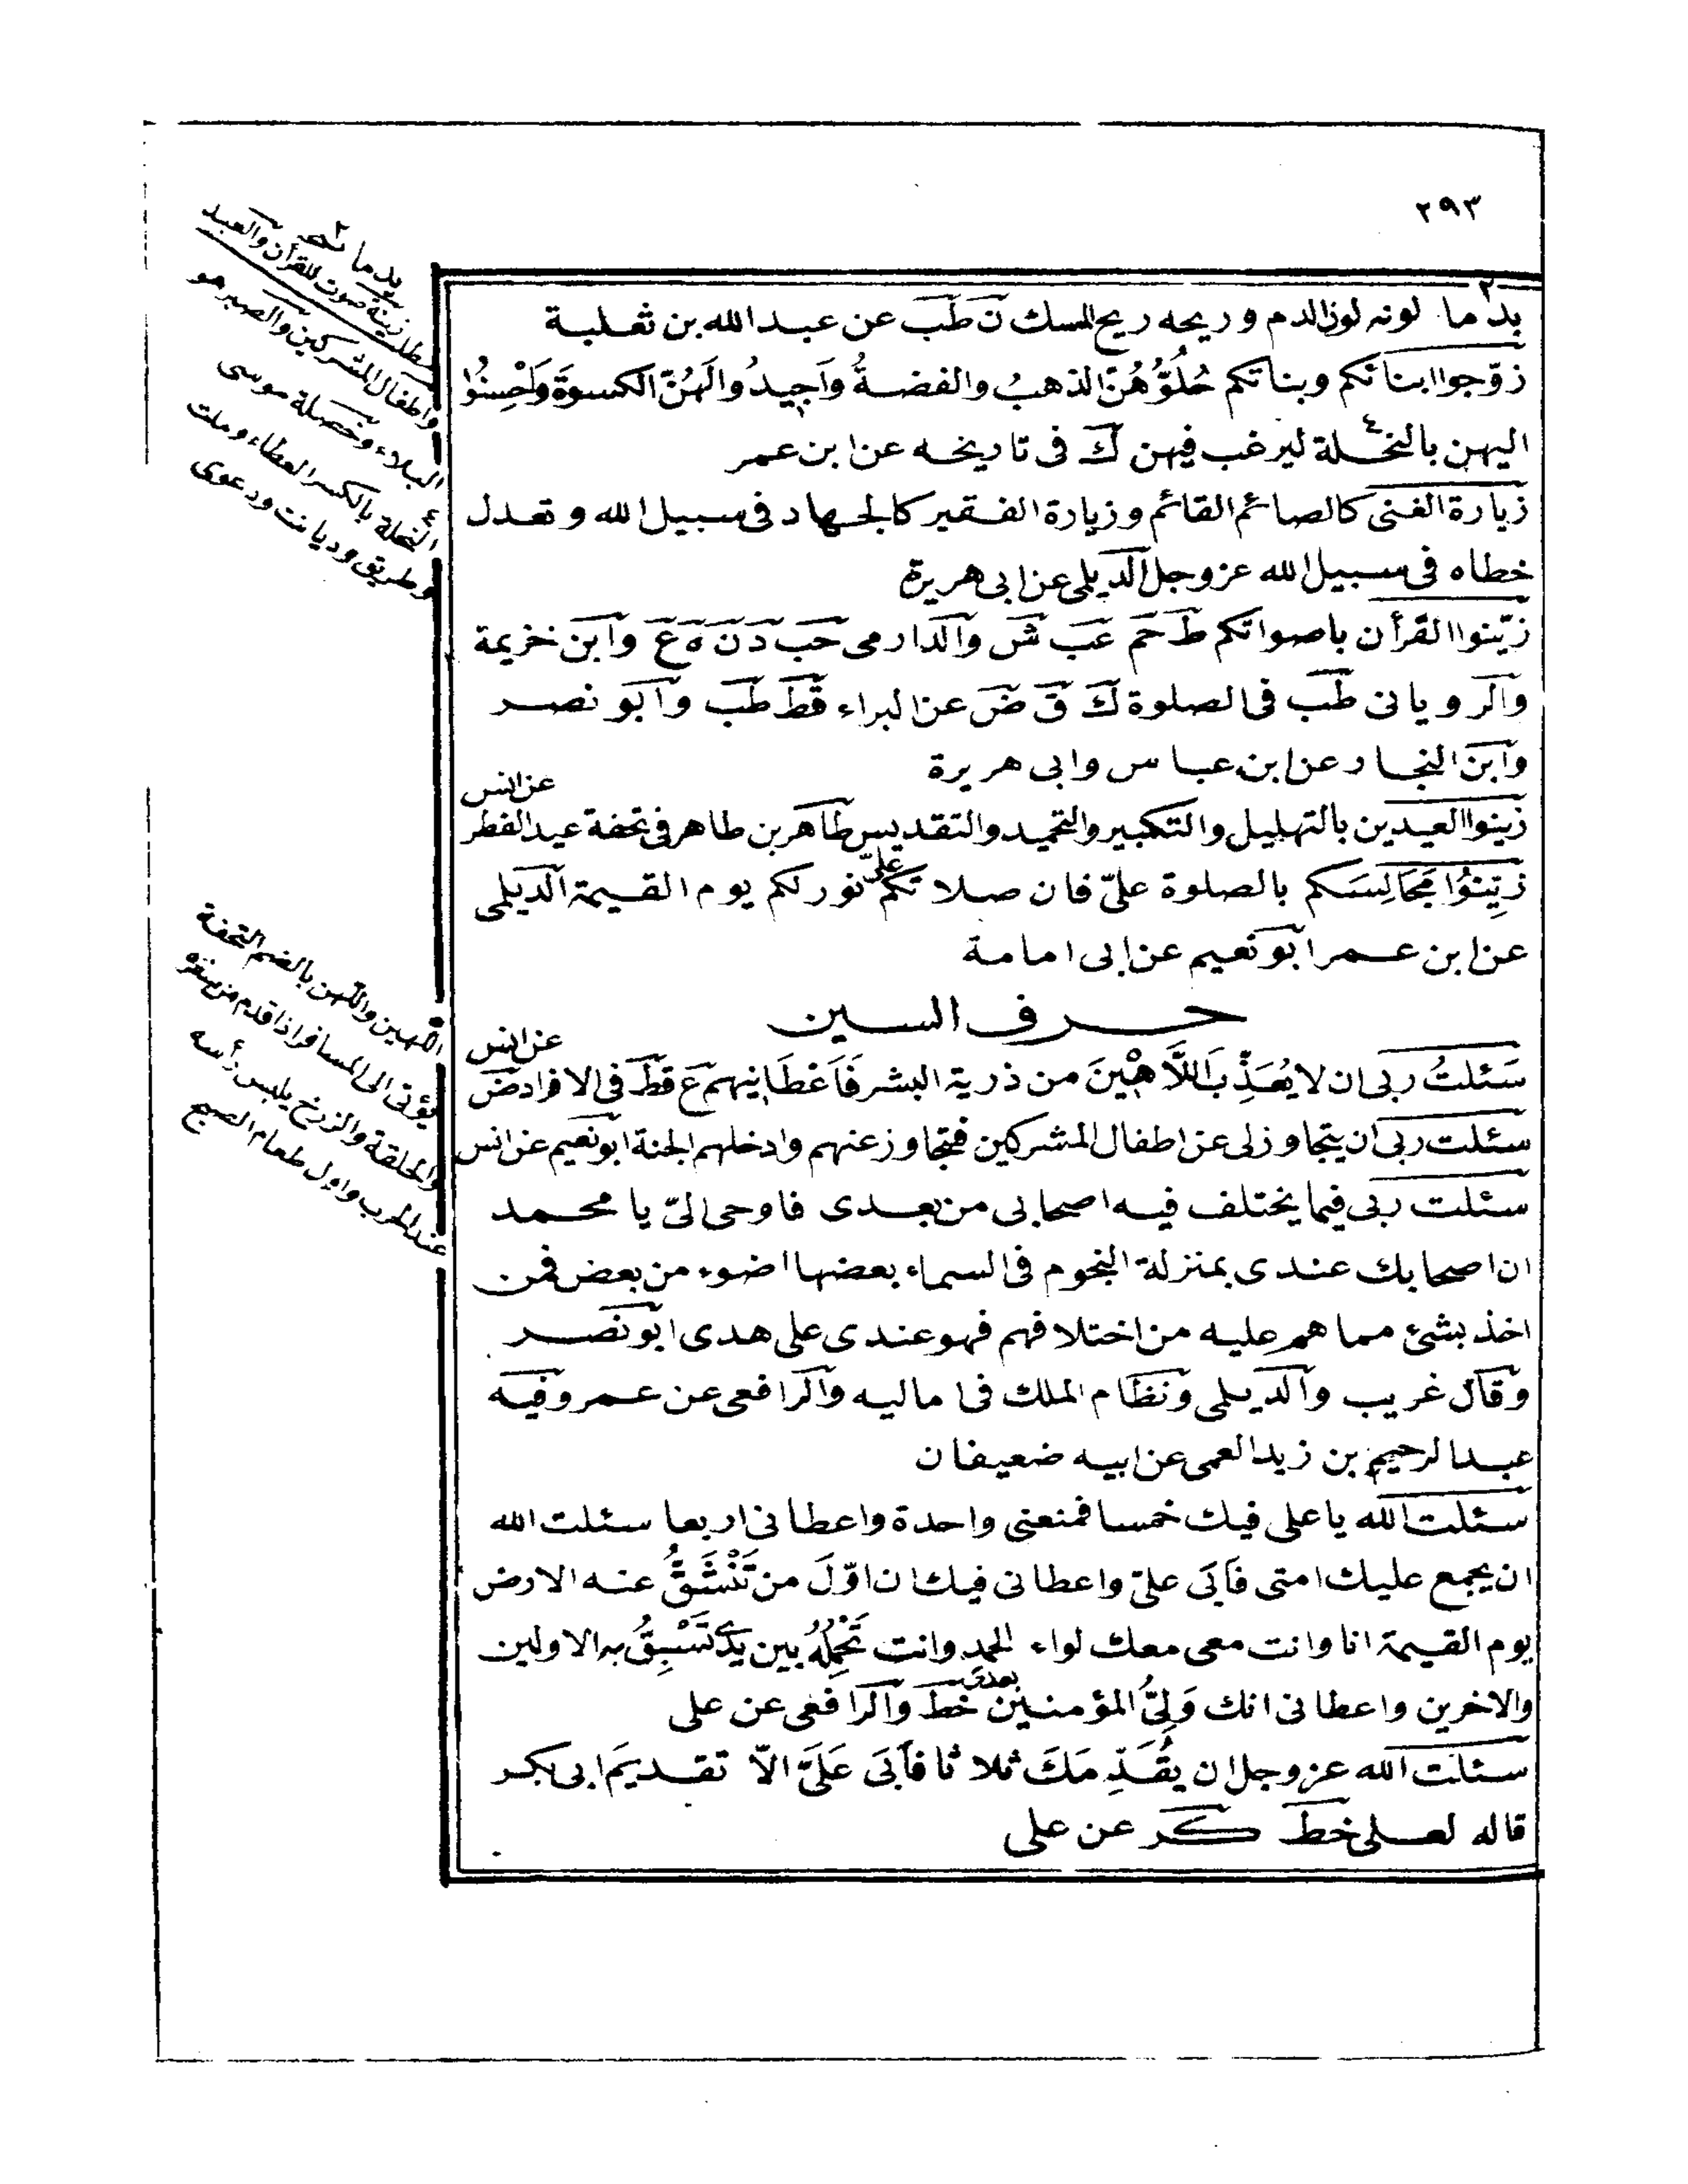 ٢٩٣
يدما لونه لون الدم وريحه ريح المسك ن طب عن عبد الله بن ثعلبة
زوّجوا ابنائكم وبناتكم حُلّوُهُنّ الذهبُ والفضةُ واَجِيدُوا لَهُنّ الكسوةَ وَاَحْسِنُوُا
اليهن بالنحلة ليرغب فيهن ك فى تاريخه عن ابن عمر
زيارة الغنى كالصائم القائم وزيارة الفقير كالجهاد فى سبيل الله وتعدل
خطاه فى سبيل الله عز وجل الديلمى عن ابى هريرة
زيّنوا القرأن باصواتكم ط حم عب ش والدارمى حب د ن ه ع وابن خزيمة
والرويانى طب فى الصلوة ك ق ض عن البراء قط طب وابو نصر
وابن النجار عن ابن عباس وابى هريرة
زينوا العيدين بالتهليل والتكبير والتحميد والتقديس طاهر بن طاهر فى تحفة عيد الفطر
عن انس
زَيِّنُوُا مَجَالِسَكم بالصلوة علىّ فان صلاتكم علىّ نور لكم يوم القيمة الديلمى
عن ابن عمر ابو نعيم عن ابى امامة
حرف السين
سَئلتُ ربى ان لا يُعَذِّبَ اللَّاهِينَ من ذرية البشر فَاَعْطَانِيهم ع قط فى الافراد ض
عن انس
سئلت ربى ان يتجاوز لى عن اطفال المشركين فتجاوز عنهم وادخلهم الجنة ابو نعيم عن انس
سئلت ربى فيما يختلف فيه اصحابى من بعدى فاوحى الىّ يا محمد
ان اصحابك عندى بمنزلة النجوم فى السماء بعضها اضوء من بعض فمن
اخذ بشئ مما هم عليه من اختلافهم فهو عندى على هدى ابو نصر
وقال غريب والديلمى ونظام الملك فى اماليه والرافعى عن عمر وفيه
عبد الرحيم بن زيد العمى عن ابيه ضعيفان
سئلت الله يا على فيك خمسا فمنعنى واحدة واعطانى اربعا سئلت الله
ان يجمع عليك امتى فَاَبَى علىّ واعطانى فيك ان اوّلَ من تَنْشَقُّ عنه الارض
يوم القيمة انا وانت معى معك لواء الحمد وانت تَحْمِلُهُ بين يدى تَسْبِقُ به الاولين
والاخرين واعطانى انك وَلِىُّ المؤمنين بعدى خط والرافعى عن على
سئلت الله عز وجل ان يُقَدِّمَكَ ثلاثا فَاَبَى عَلَىَّ الاّ تقديمَ ابى بكر
قاله لعلى خط كر عن على
يدما نسخه
زينة صوت للقرأن والعبد
واطفال المشركين والصبر هو
البلاء وخصلة موسى
النحلة بالكسر العطاء وملت
وطريق وديانت ودعوى
اللهين واللهن بالضم التحفة
يؤتى الى المسافر اذا قدم من سفره
والحلقة والزرخ يلبس رأسه
عند الحرب واول طعام الصبح